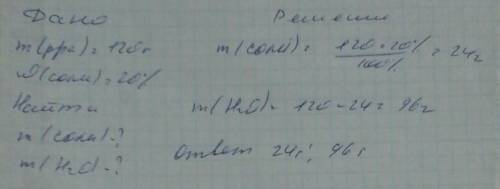 Дано
Решение
m(рра) = 120г
m(соли) = 120 · 20% / 100% = 24г
ω(соли) = 20%
Найти
m(H₂O) = 120 - 24 = 96г
m(соли) - ?
m(H₂O) - ?
Ответ 24г; 96г